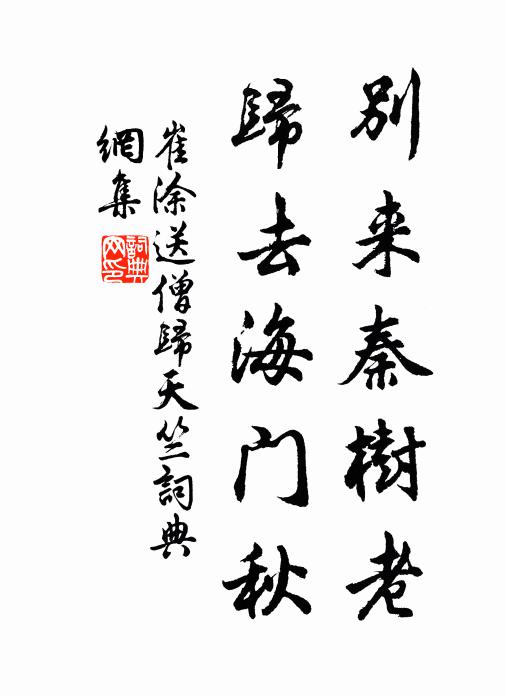 别来秦樹老
歸去海门秋
崔涂送僧歸天竺詞典
網集
詞典網印